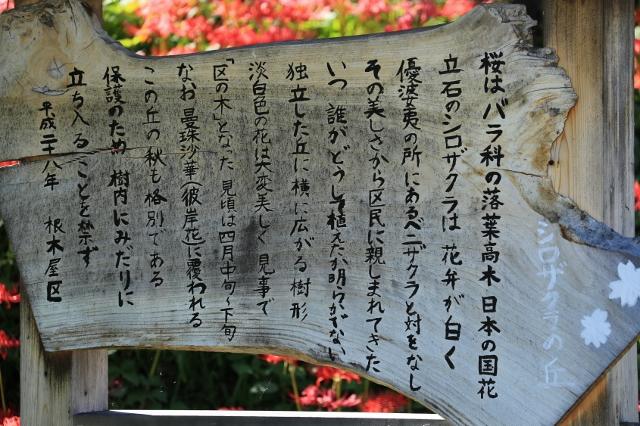 シロザクラの丘
桜はバラ科の落葉高木 日本の国花
立石のシロザクラは 花弁が白く
優婆夷の所にあるベニザクラと対をなし
その美しさから区民に親しまれてきた
いつ 誰がどうして植えたか明らかでない
独立した丘に 横に広がる樹形
淡白色の花は大変美しく 見事で
「区の木」となった 見頃は四月中旬〜下旬
なお 曼珠沙華(彼岸花)に覆われる
この丘の秋も格別である
保護のため 樹内にみだりに
立ち入ることを禁ず
平成二十八年 根木屋区